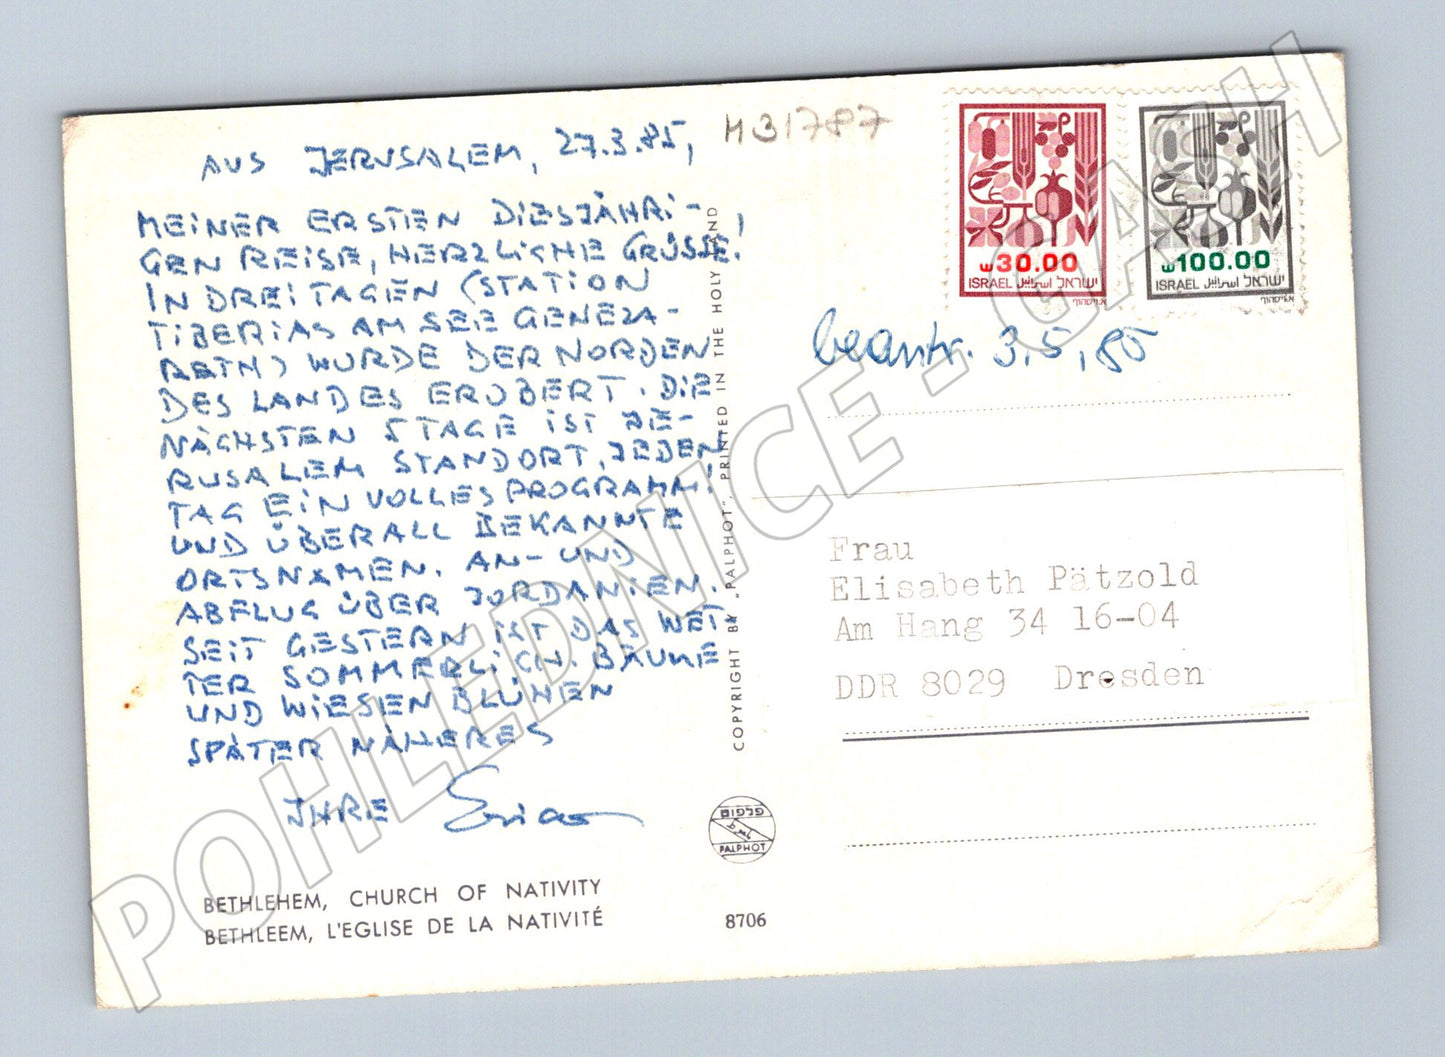 AUS JERUSALEM, 27.3.85,
MEINER ERSTEN DIESJÄHRI-
GEN REISE, HERZLICHE GRÜSSE!
IN DREI TAGEN (STATION
TIBERIAS AM SEE GENEZA-
RETH) WURDE DER NORDEN
DES LANDES EROBERT. DIE
NÄCHSTEN 5 TAGE IST JE-
RUSALEM STANDORT. JEDEN
TAG EIN VOLLES PROGRAMM!
UND ÜBERALL BEKANNTE
ORTSNAMEN. AN- UND
ABFLUG ÜBER JORDANIEN.
SEIT GESTERN IST DAS WET-
TER SOMMERLICH. BÄUME
UND WIESEN BLÜHEN
SPÄTER NÄHERES
IHRE
BETHLEHEM, CHURCH OF NATIVITY
BETHLEEM, L'EGLISE DE LA NATIVITÉ
H31787
COPYRIGHT BY „PALPHOT". PRINTED IN THE HOLY LAND
PALPHOT
8706
30.00
ISRAEL اسرائيل ישראל
100.00
ISRAEL اسرائيل ישראל
beantw. 3.5.85
Frau
Elisabeth Pätzold
Am Hang 34 16-04
DDR 8029 Dresden
POHLEDNICE - GASH